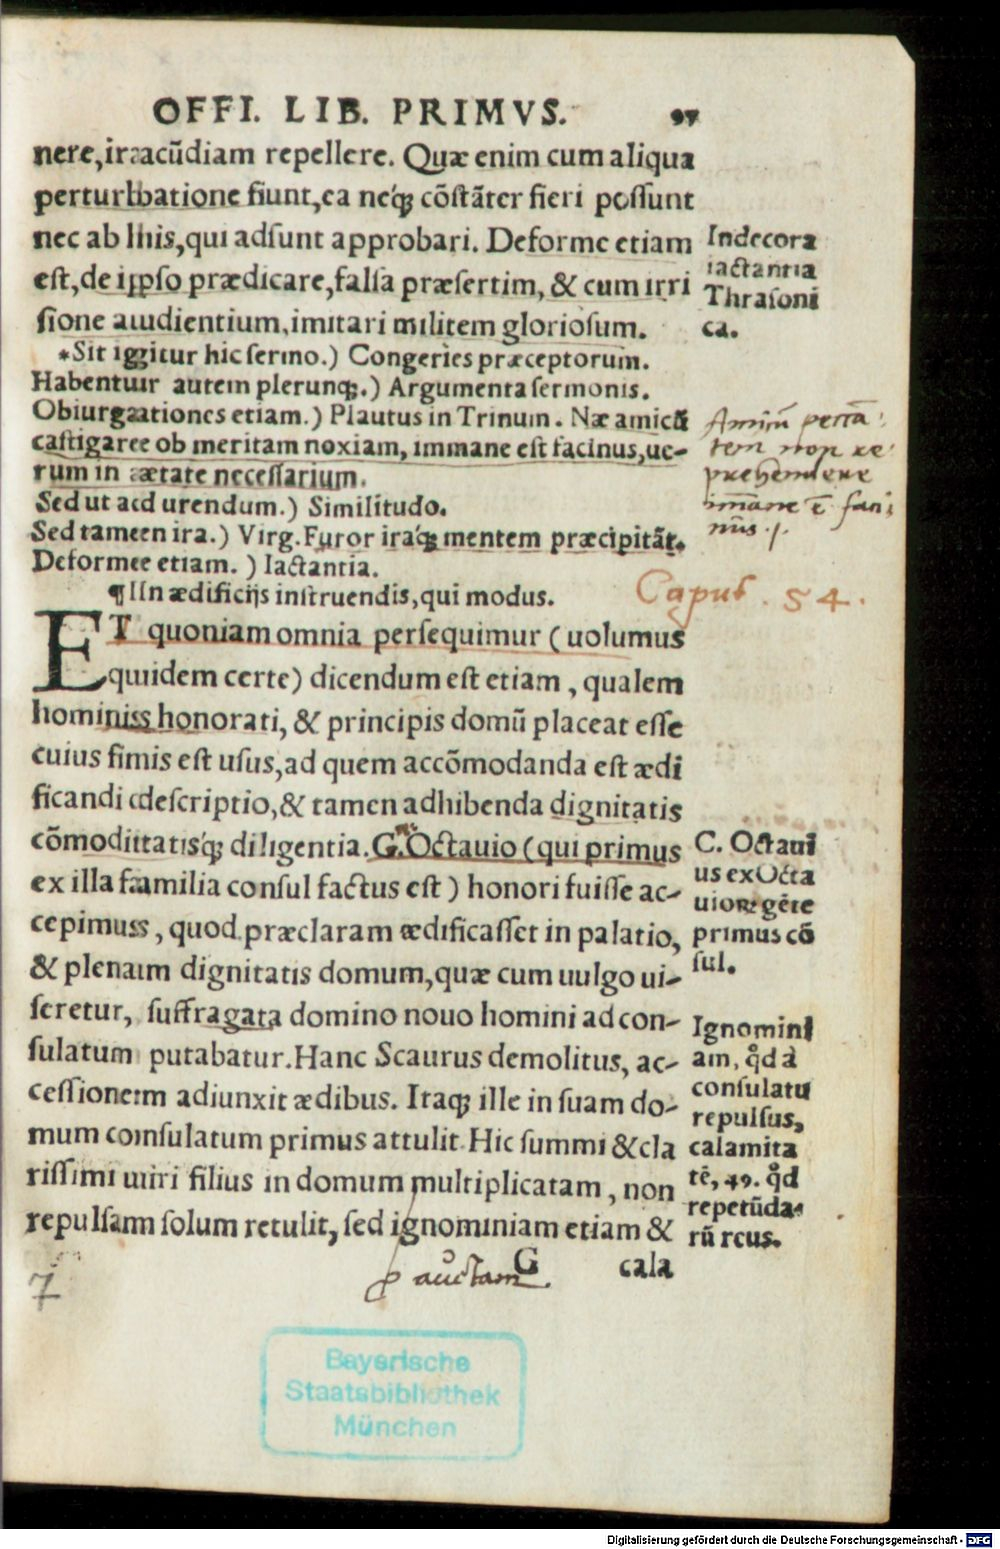 OFFI. LIB. PRIMVS. 97
nere, iracũdiam repellere. Quæ enim cum aliqua
perturbatione fiunt, ea neq́; cõſtãter fieri poſſunt
nec ab his, qui adſunt approbari. Deforme etiam
eſt, de ipſo prædicare, falſa præſertim, & cum irri
ſione audientium, imitari militem glorioſum.
Indecora
iactantia
Thraſoni
ca.
*Sit igitur hic ſermo.) Congeries præceptorum.
Habentur autem plerunq;.) Argumenta ſermonis.
Obiurgationes etiam.) Plautus in Trinum. Næ amicũ
caſtigare ob meritam noxiam, immane eſt facinus, ue-
rum in ætate neceſſarium.
Sed ut ad urendum.) Similitudo.
Sed tamen ira.) Virg. Furor iraq́; mentem præcipitãt.
Deforme etiam.) Iactantia.
tem non re
prehendere
¶ In ædificijs inſtruendis, qui modus.
Caput. 54.
ET quoniam omnia perſequimur (uolumus
quidem certe) dicendum eſt etiam, qualem
hominis honorati, & principis domũ placeat eſſe
cuius finis eſt uſus, ad quem accõmodanda eſt ædi
ficandi deſcriptio, & tamen adhibenda dignitatis
cõmoditatisq́; diligentia. G. Octauio (qui primus
ex illa familia conſul factus eſt) honori fuiſſe ac-
cepimus, quod præclaram ædificaſſet in palatio,
& plenam dignitatis domum, quæ cum uulgo ui-
ſeretur, ſuffragata domino nouo homini ad con-
ſulatum putabatur. Hanc Scaurus demolitus, ac-
ceſſionem adiunxit ædibus. Itaq; ille in ſuam do-
mum conſulatum primus attulit. Hic ſummi & cla
riſſimi uiri filius in domum multiplicatam, non
repulſam ſolum retulit, ſed ignominiam etiam &
C. Octaui
us ex Octa
uiorẽ gẽte
primus cõ
ſul.
Ignomini
am, q̊d à
conſulatu
repulſus,
calamita
tẽ, 49. q̊d
repetũda-
rũ reus.
G cala
auctam
7
Bayerische
Staatsbibliothek
München
Digitalisierung gefördert durch die Deutsche Forschungsgemeinschaft - DFG